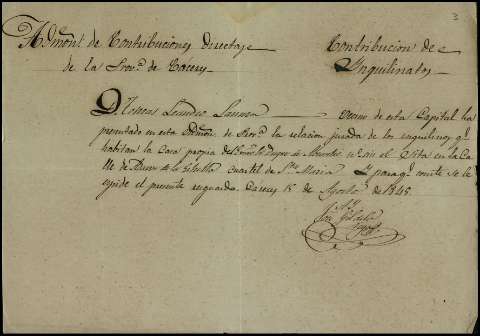 3
Admon.t de Contribuciones directas
de la Prov.a de Caceres
Contribucion de
Inquilinatos
D. Tomas Leandro Vecino de esta Capital ha
presentado en esta Admon de Prov.a la relacion jurada de los inquilinos q.e
habitan la Casa propia de sita en la Ca
lle de cuartel de S.ta Maria Y para q.e conste se le
espide el presente resguardo. Caceres 15 de Agosto de 1845